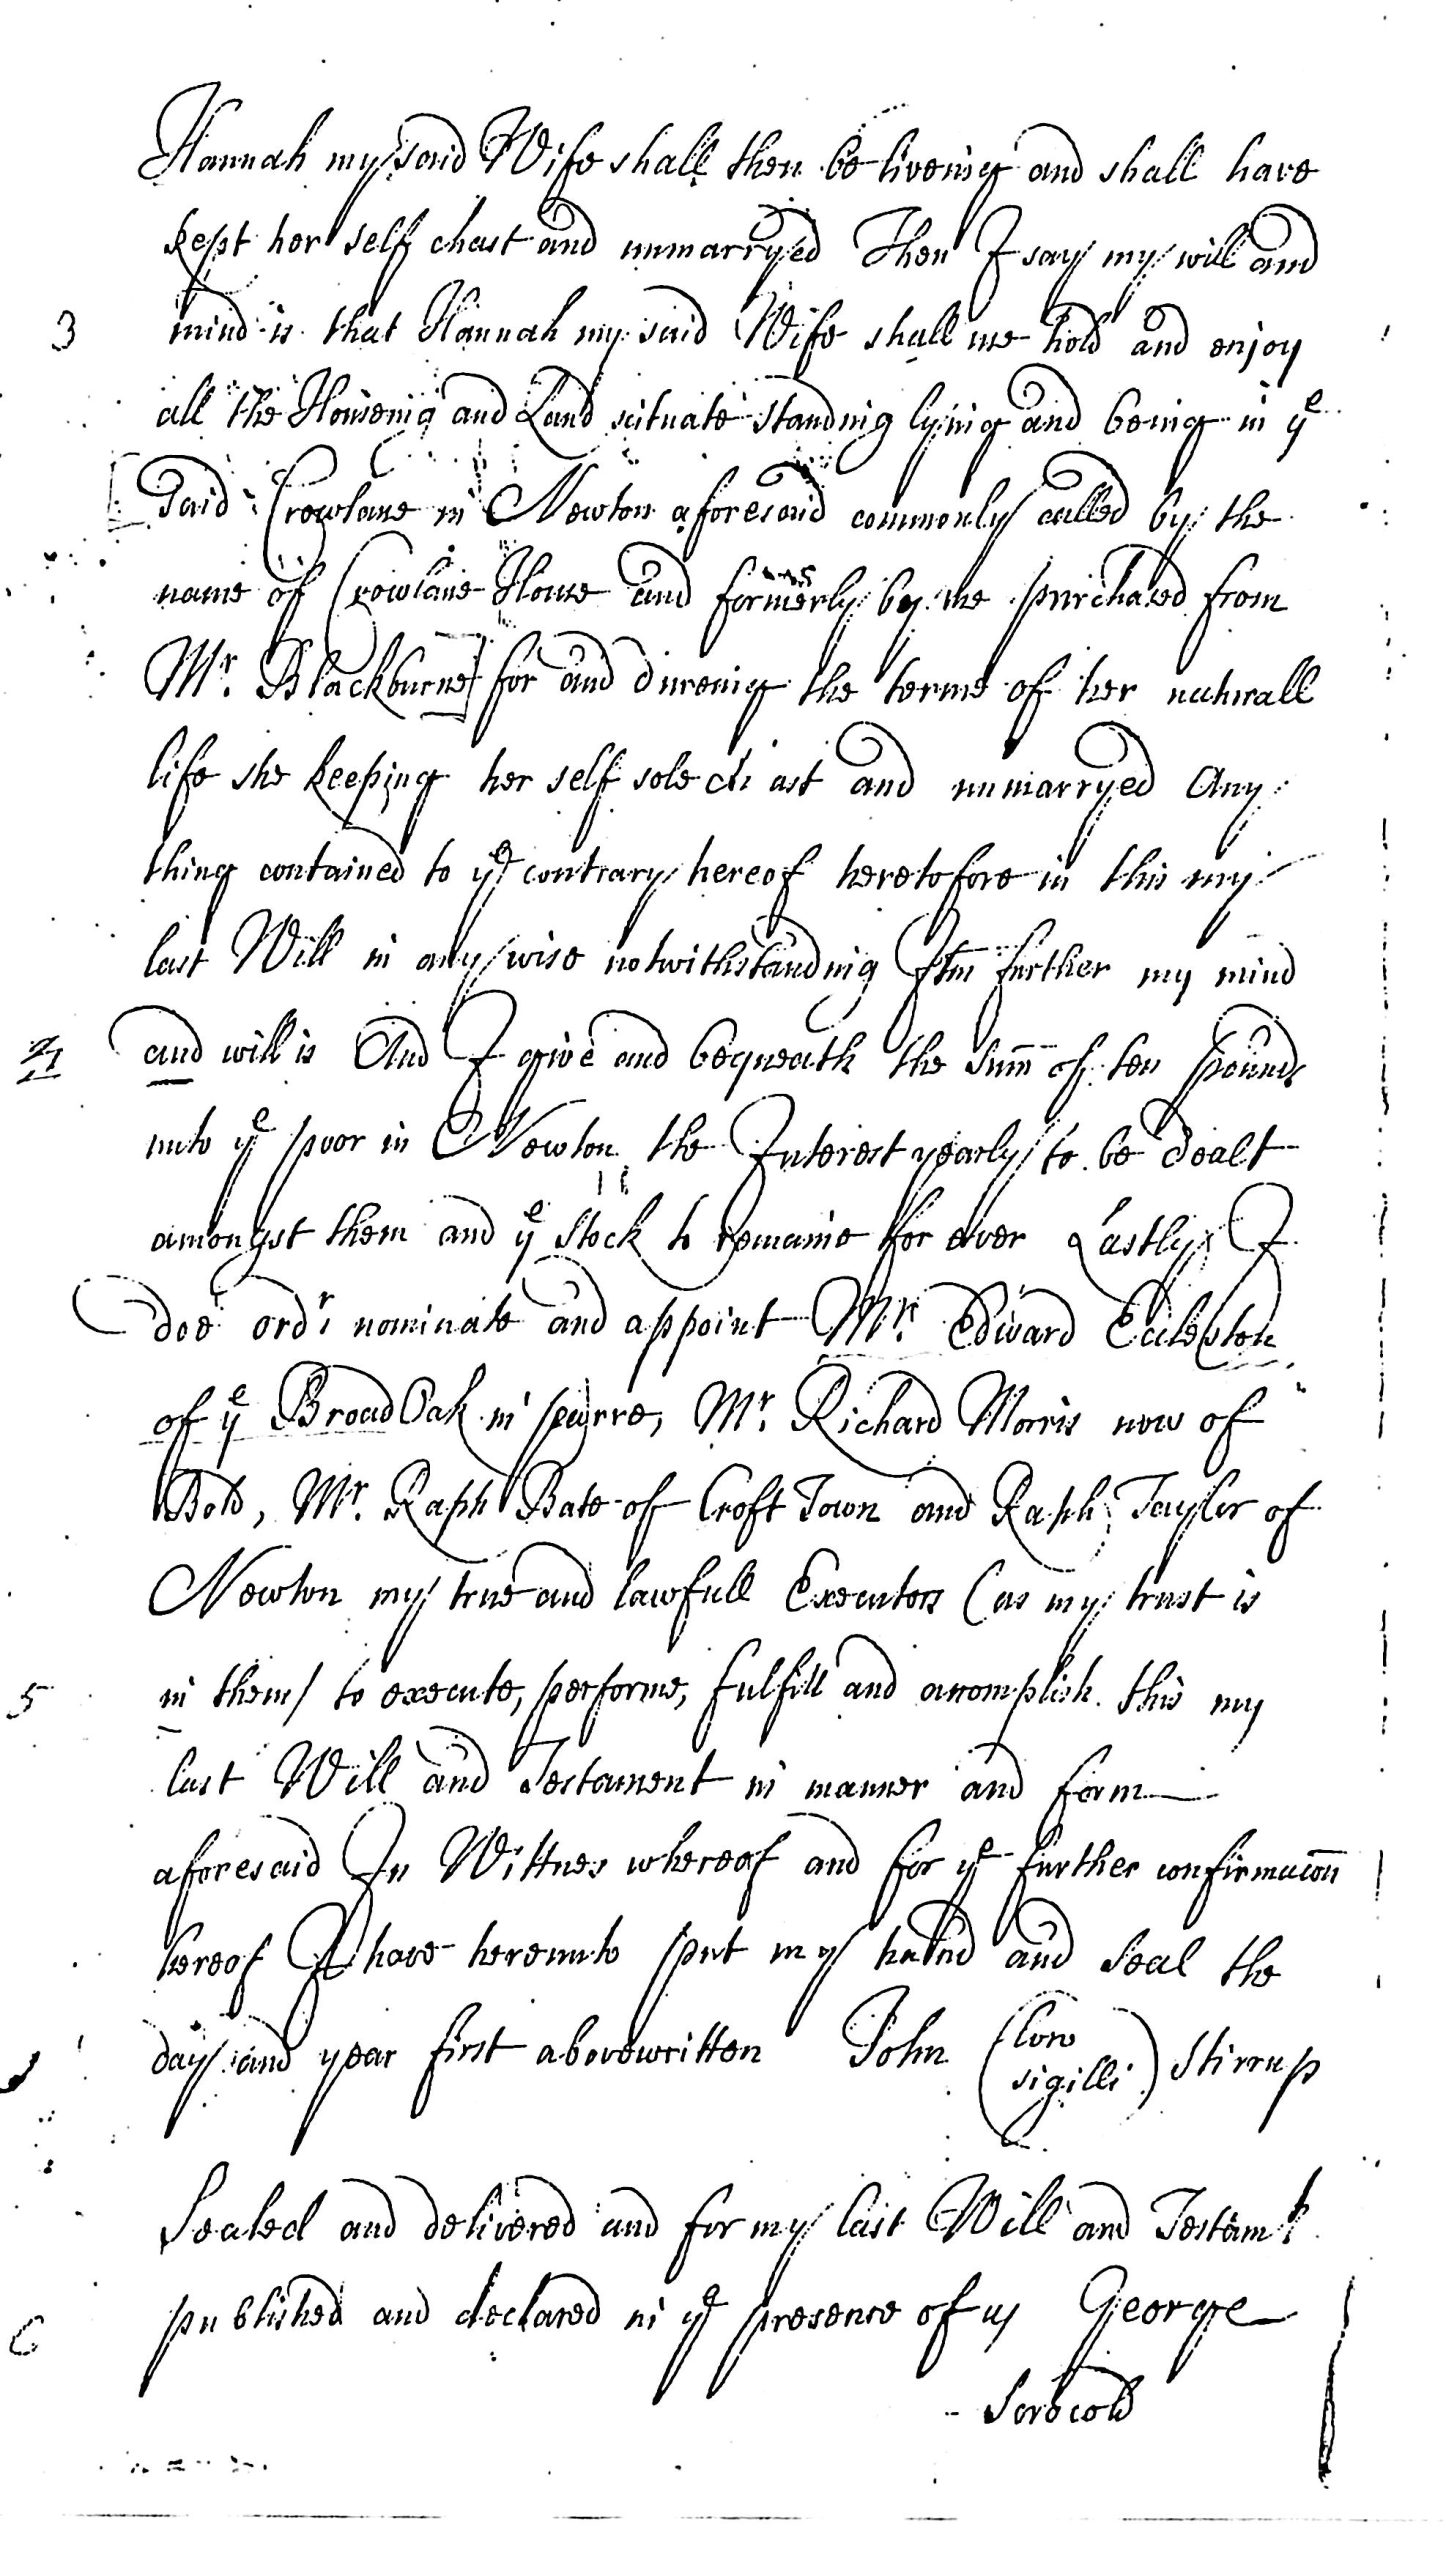 Hannah my said Wife shall then be liveing and shall have
kept her self chast and unmarryed Then I say my will and
3 mind is that Hannah my said Wife shall use hold and enjoy
all the Houseing and Land scituate standing lying and being in yᵉ
said Crowlane in Newton aforesaid commonly called by the
name of Crowlane House and formerly by me purchased from
Mʳ. Blackburne] for and dureing the terme of her naturall
life she keeping her self sole chast and unmarryed Any
thing contained to yᵉ contrary hereof heretofore in this my
last Will in any wise notwithstanding Itm further my mind
4 and will is And I give and bequeath the sum̅ of ten pounds
unto yᵉ poor in Newton the Interest yearly to be dealt
amongst them and yᵉ stock to remaine for ever Lastly I
doe ordʳ nominate and appoint Mʳ. Edward Eccleston
of yᵉ Broad Oak in parre, Mʳ. Richard Morris now of
Bold, Mʳ. Raph Bate of Croft Town and Raph Taylor of
Newton my true and lawfull Executors (as my trust is
5 in them/ to execute, performe, fulfill and accomplish this my
last Will and Testament in manner and form
aforesaid In Wittnes whereof and for yᵉ further confirmacon̅
hereof I have hereunto put my hand and seal the
day and year first abovewritten John (Loco sigilli) Stirrup
Sealed and delivered and for my last Will and Testamᵗ
published and declared in yᵉ presence of us George
6
Serocold